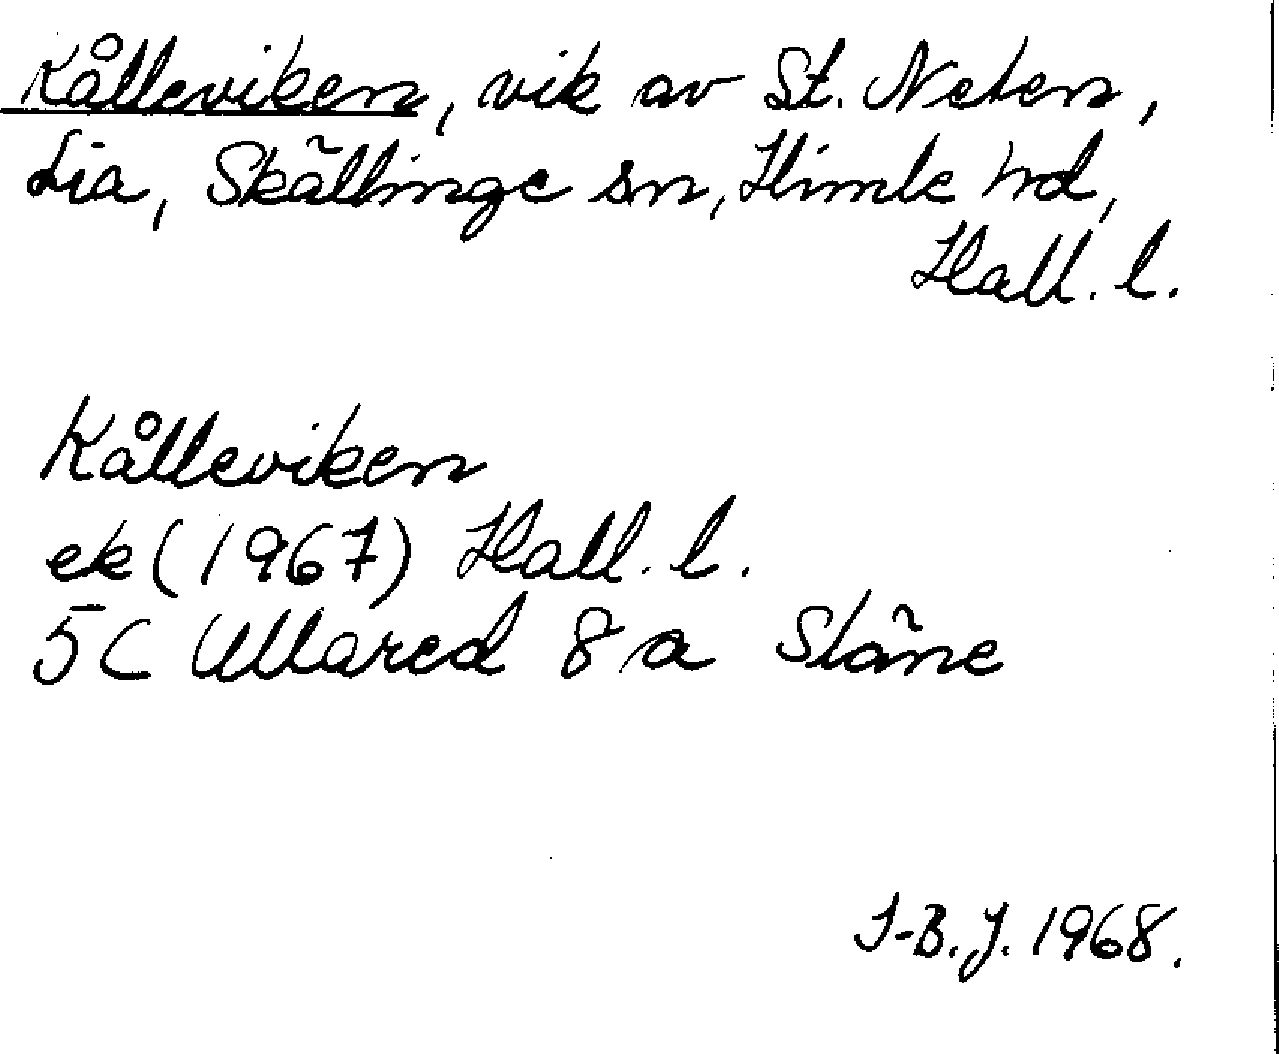 Kålleviken, vik av St. Neten,
Lia, Skällinge sn, Himle hd,
Hall. l.
Kålleviken
ek (1967) Hall. l.
5C Ullared 8 a Släne
I-B. J. 1968.